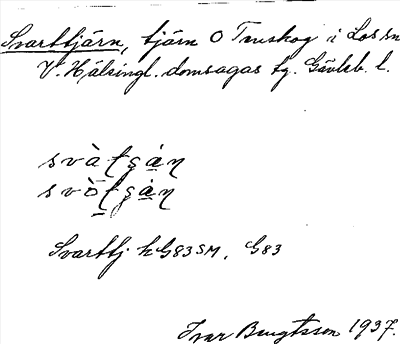 Svarttjärn, tjärn O Tenskog i Los sn
V. Hälsingl. domsagas tg. Gävleb. l.
svàt̡
svö̀t̡
Svarttj hG83SM, G83
Ivar Bengtsson 1937.